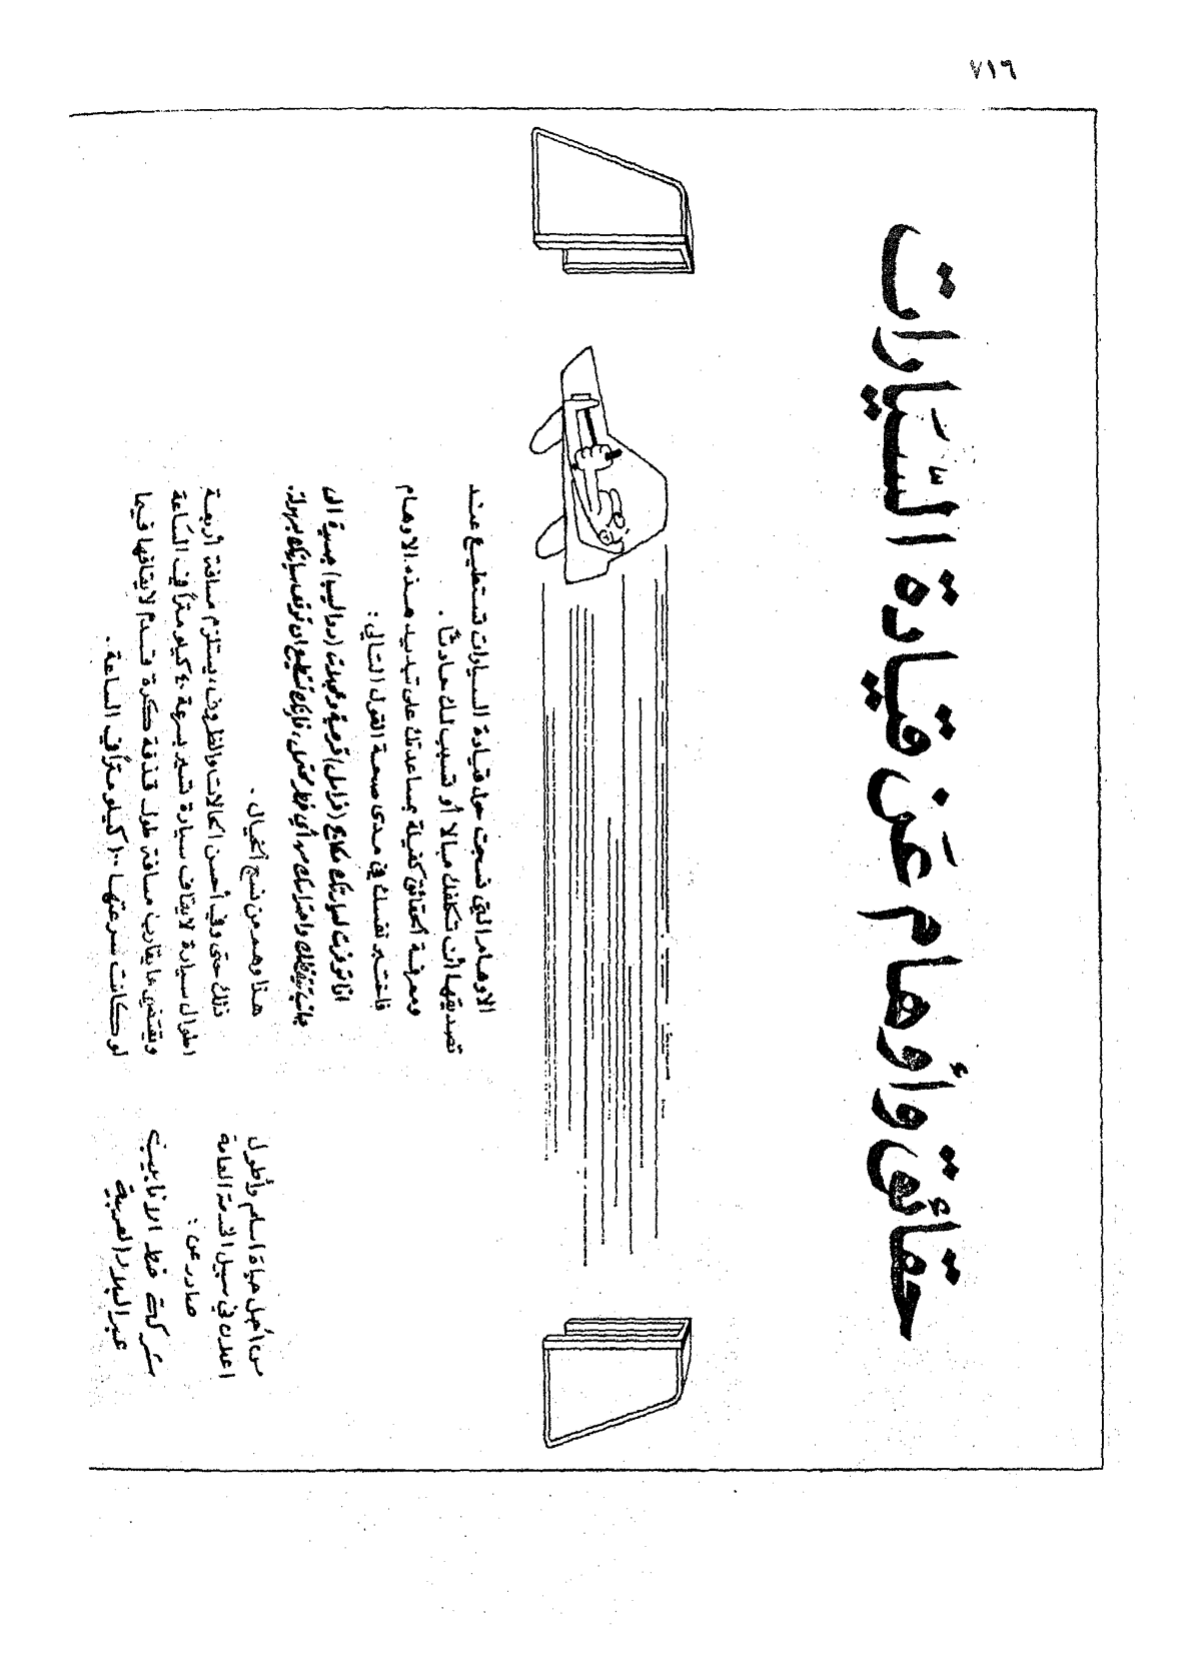 ٧١٦
حقائق وأوهام عَن قيادة السَّيارات
الاوهام التي نسجت حول قيادة السيارات تستطيع عند
تصديقها أن تكلفك مالا أو تسبب لك حادثًا .
ومعرفة الحقائق كفيلة بمساعدتك على تبديد هذه الاوهام
فاختبر نفسك في مدى صحة القول التالي :
اذا توفرت لسيارتك مكابح (فرامل) قرصية وعجلات (دواليب) جيدة الى
جانب تيقظك واحتراسك من أي خطر محتمل، فإنك تستطيع ان توقف سيارتك بسهولة.
هذا وهم من نسج الخيال .
ذلك حتى وفي أحسن الحالات والظروف، يستلزم مسافة أربعة
اطوال سيارة لايقاف سيارة تسير بسرعة ٤٠ كيلو مترًا في السّاعة
ويقتضي ما يقارب مسافة طول قذفة كرة قدم لايقافها فيما
لو كانت سرعتها ١٠٠ كيلو مترًا في الساعة.
من أجل حياة اسلم وأطول
اعلان في سبيل الخدمة العامة
صادر عن :
شركة خط الانابيب
عبر البلاد العربية